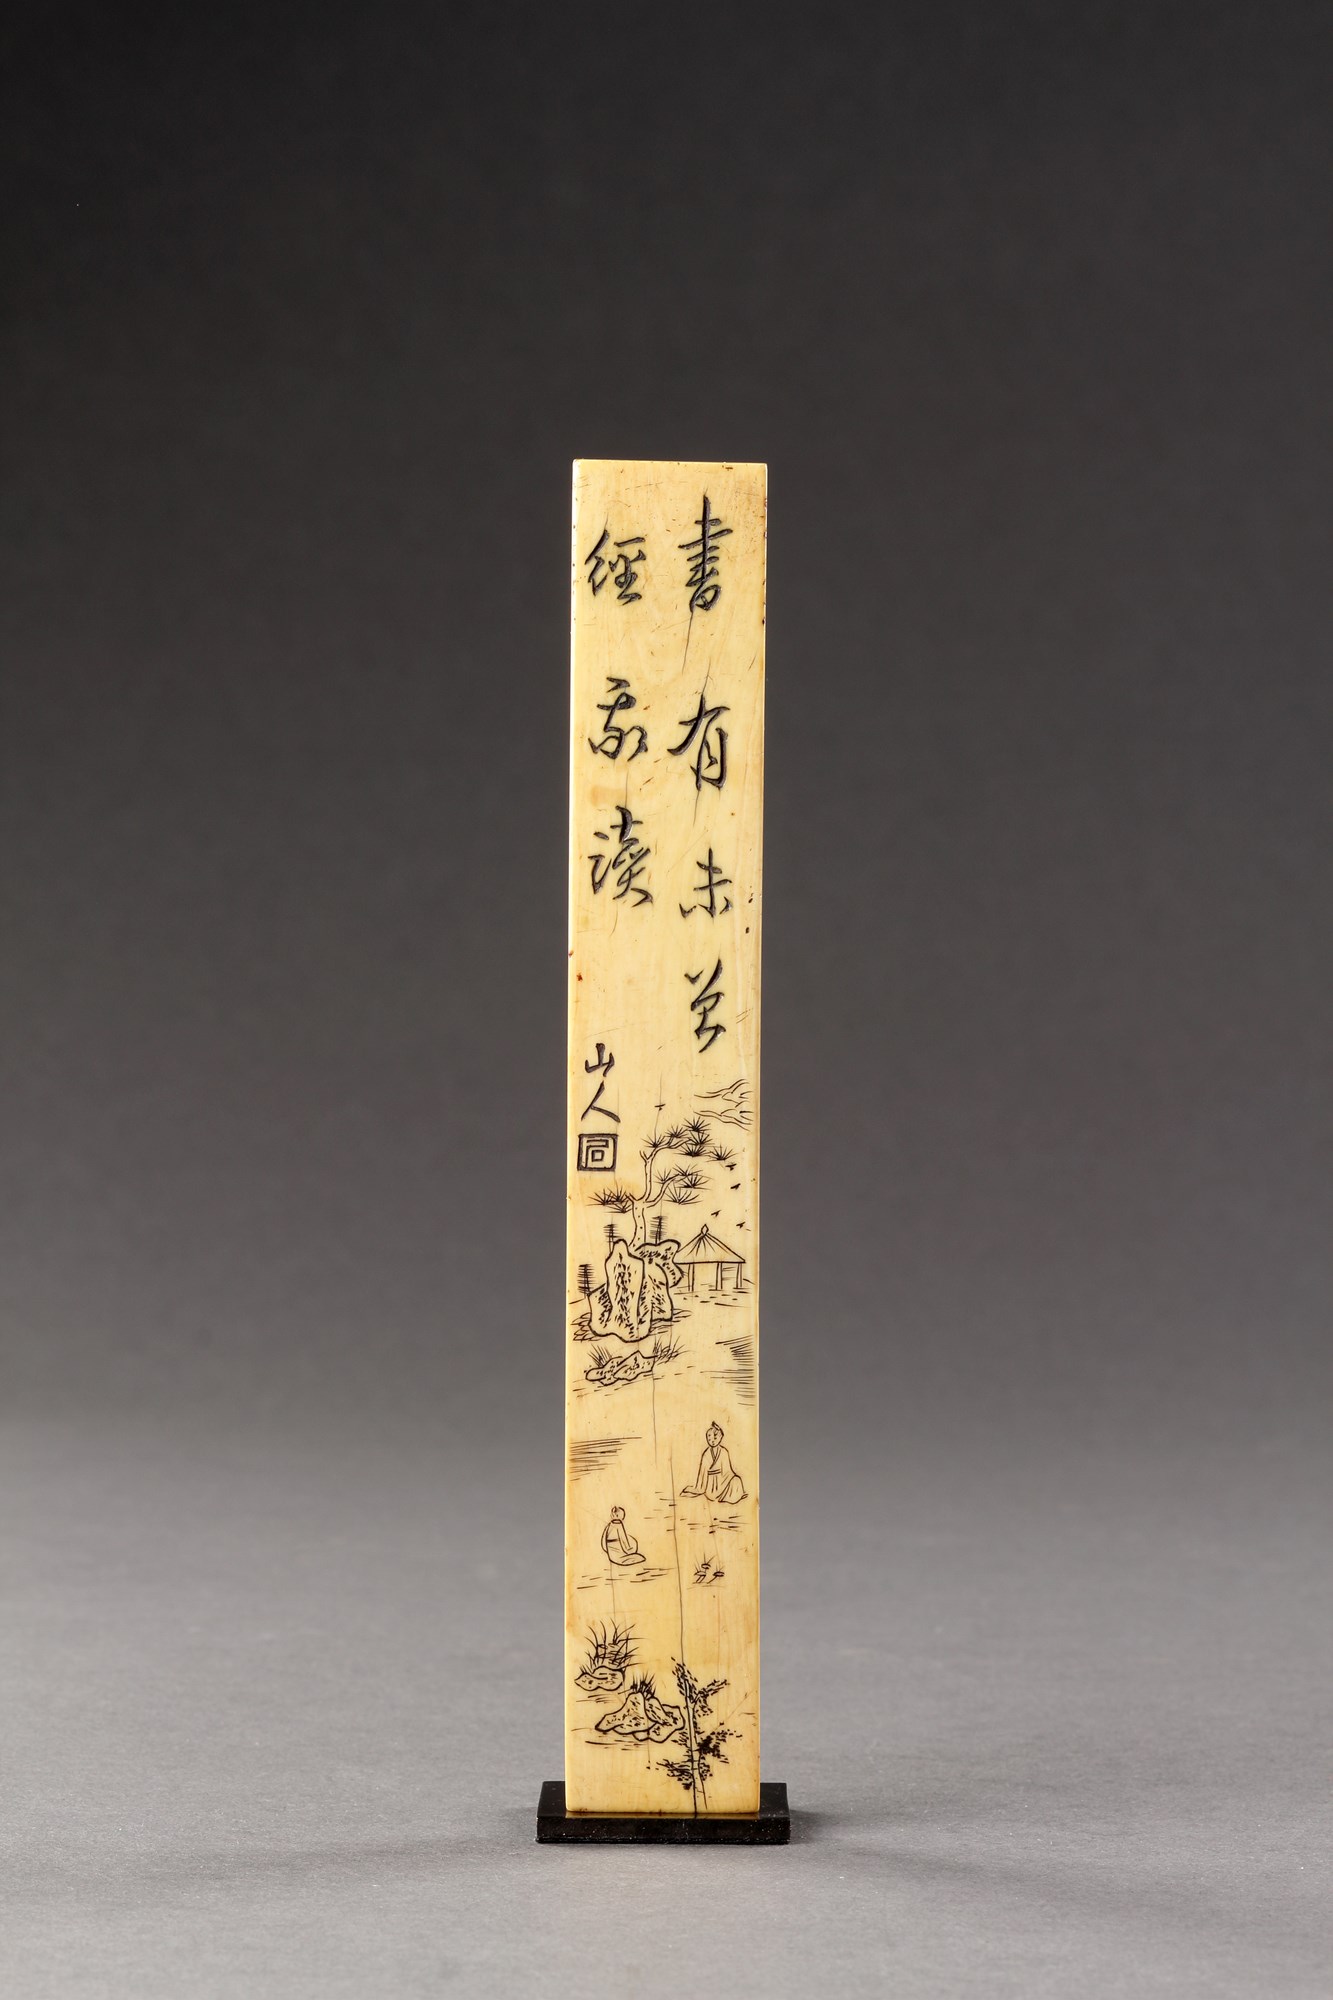 書有未曽
經我讀
山人